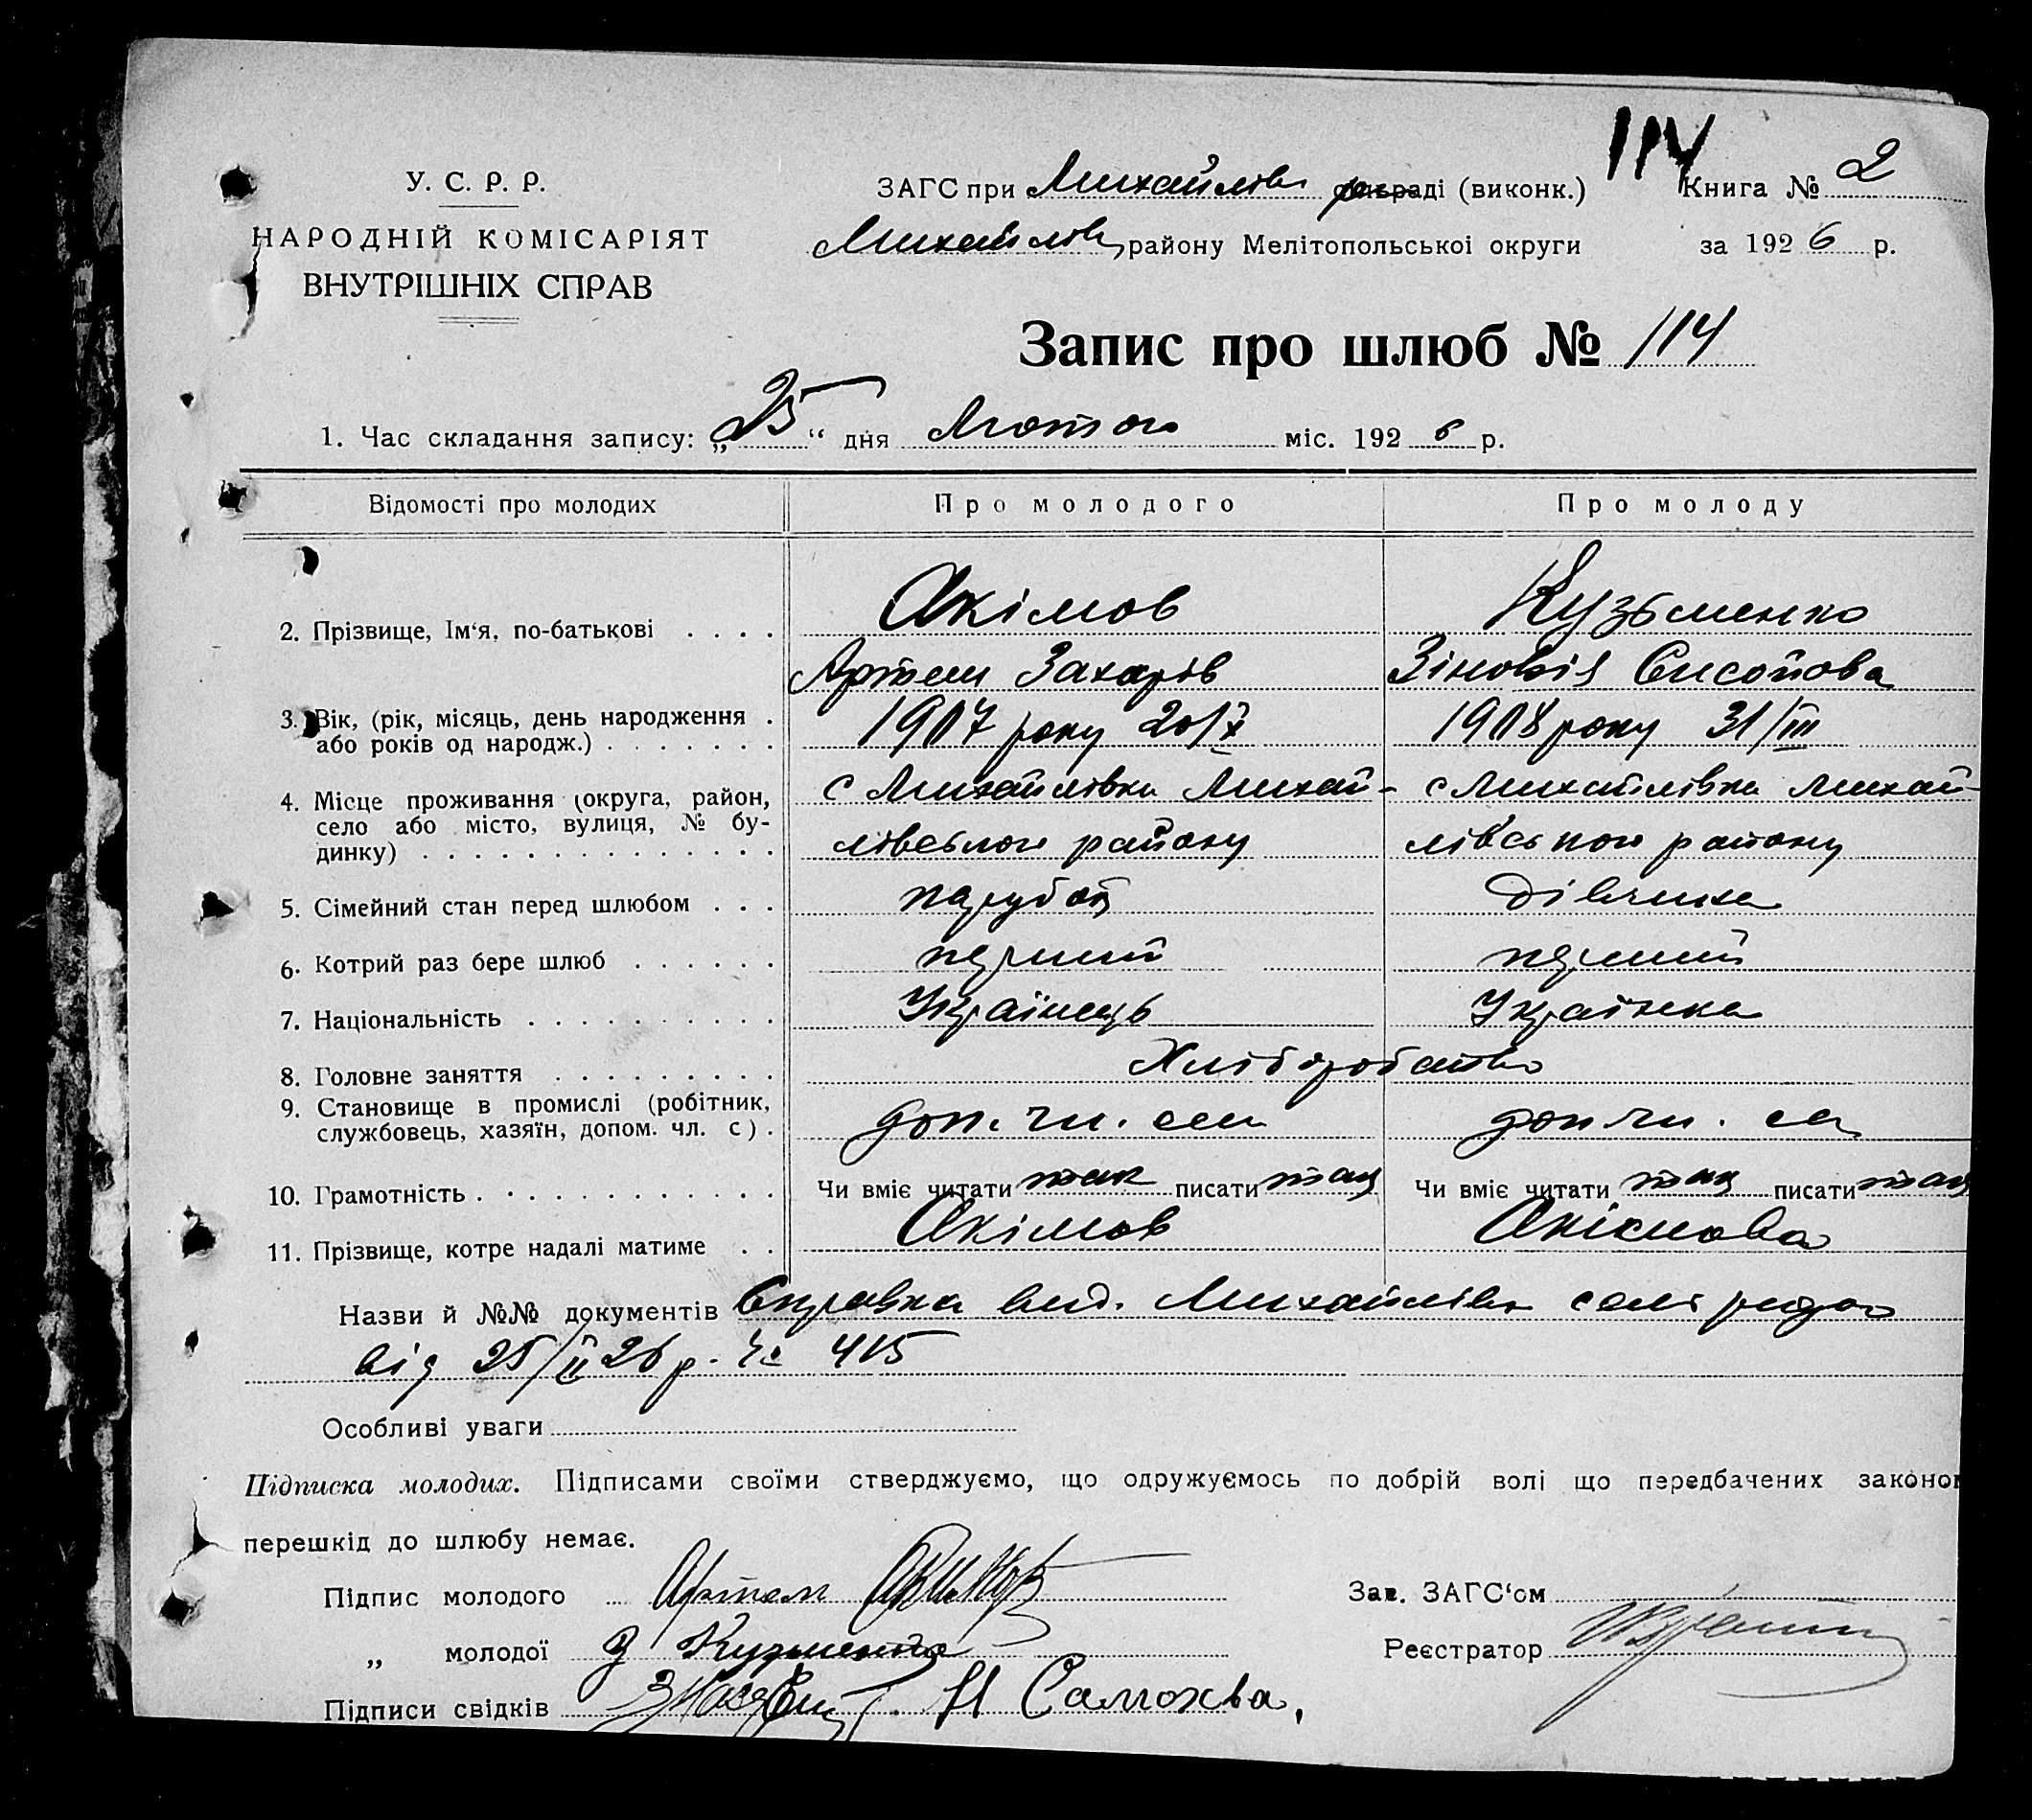 114
У. С. Р. Р.
НАРОДНІЙ КОМІСАРІЯТ
ВНУТРІШНІХ СПРАВ
ЗАГС при Михайлів раді (виконк.) Книга № 2
Михайлів району Мелітопольськоі округи за 1926 р.
Запис про шлюб № 114
1. Час складання запису: „25“ дня Лютого міс. 1926 р.
Відомості про молодих Про молодого Про молоду
2. Прізвище, Ім‘я, по-батькові Акімов Кузьменко
Артем Захарів Зіновія Сисоїова
3. Вік, (рік, місяць, день народження 1907 року 20/X 1908 року 31/III
або років од народж.)
4. Місце проживання (округа, район, с Михайлівка Михай- с Михайлівка Михай-
село або місто, вулиця, № бу-
динку) лівського району лівського району
5. Сімейний стан перед шлюбом парубок дівчина
6. Котрий раз бере шлюб перший перший
7. Національність Українець Українка
8. Головне заняття Хліборобство
9. Становище в промислі (робітник,
службовець, хазяїн, допом. чл. с) доп. чл. сем доп чл. се
10. Грамотність Чи вміє читати так писати так Чи вміє читати так писати так
11. Прізвище, котре надалі матиме Акімов Акімова
Назви й №№ документів Справка вид. Михайлівк сельрадою
від 25/II 26 р. Ч 415
Особливі уваги
Підписка молодих. Підписами своїми стверджуємо, що одружуємось по добрій волі що передбачених законом
перешкід до шлюбу немає.
Підпис молодого Артем Акимов Зав. ЗАГС‘ом
„ молодої З Кузменко Реєстратор
Підписи свідків Н Самохва,